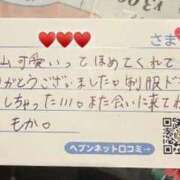 さま
山可愛いってほめてくれて
がとうございました。制服ド
しちゃった!!!。また会いに来てね
もか。
ヘブンネット口コミ→